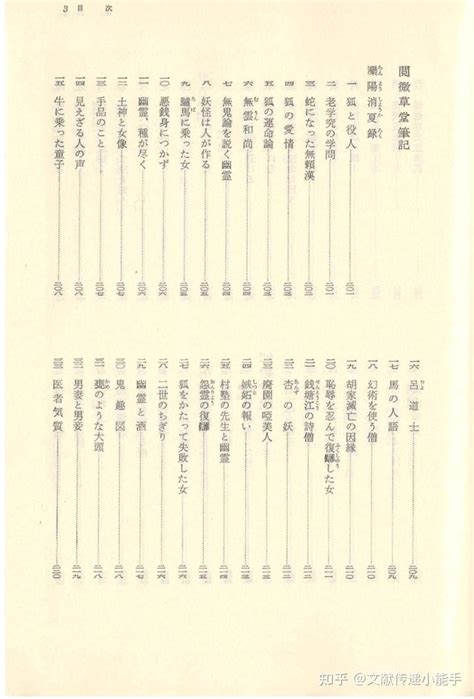 3 目次
閲微草堂筆記
灤陽消夏録
一 狐と役人 二〇一
二 老学究の学問
三 蛇になった無頼漢
四 狐の愛情
五 狐の運命論
六 無雲和尚
七 無鬼論を説く幽霊
八 妖怪は人が作る
九 驢馬に乗った女
一〇 悪銭身につかず 二〇六
一一 幽霊、種が尽く 二〇六
一二 土神と女像 二〇七
一三 手品のこと 二〇七
一四 見えざる人の声 二〇八
一五 牛に乗った童子 二〇八
一六 呂道士 二〇九
一七 馬の人語 二〇九
一八 幻術を使う僧 二一〇
一九 胡家滅亡の因縁 二一〇
二〇 恥辱を忍んで復讎した女
二一 銭塘江の詩僧
二二 杏の妖
二三 廃園の唖美人
二四 嫉妬の報い
二五 村塾の先生と幽霊
二六 怨霊の復讎 二一五
二七 狐をかたって失敗した女 二一六
二八 二世のちぎり 二一六
二九 幽霊と酒 二一七
三〇 鬼趣図 二一八
三一 甕のような大頭 二一八
三二 男妾と男妾 二一九
三三 医者気質 二二〇
知乎 @文献传递小能手